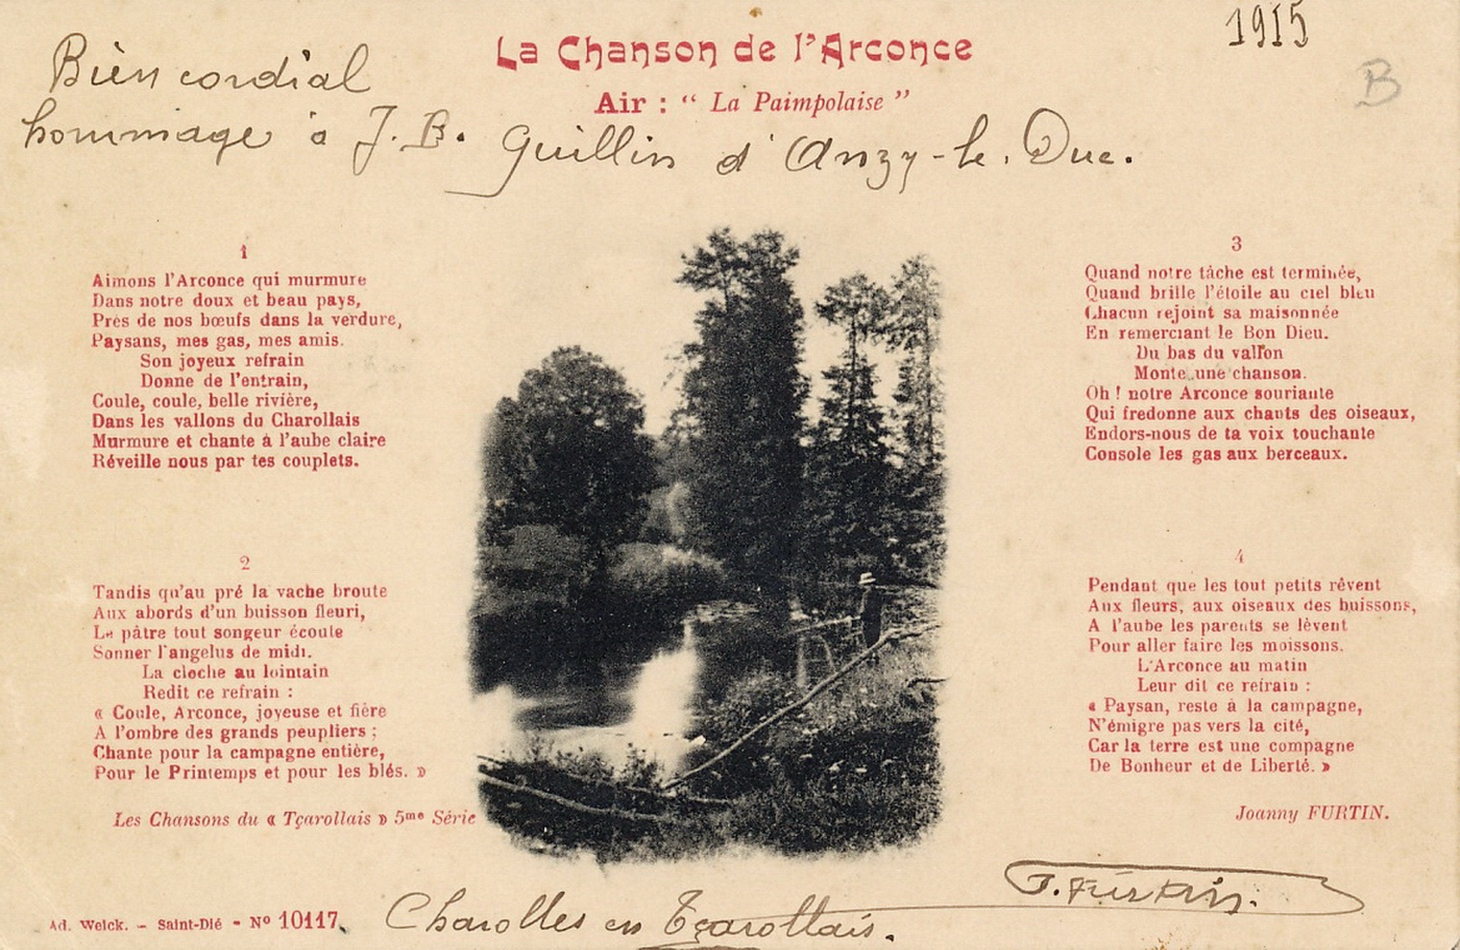 1915
La Chanson de l'Arconce
Air : “ La Paimpolaise ”
B
Bien cordial
hommage à J. B. Guillin d'Anzy-le-Duc.
1
Aimons l'Arconce qui murmure
Dans notre doux et beau pays,
Près de nos bœufs dans la verdure,
Paysans, mes gas, mes amis.
Son joyeux refrain
Donne de l'entrain,
Coule, coule, belle rivière,
Dans les vallons du Charollais
Murmure et chante à l'aube claire
Réveille nous par tes couplets.
2
Tandis qu'au pré la vache broute
Aux abords d'un buisson fleuri,
Le pâtre tout songeur écoute
Sonner l'angelus de midi.
La cloche au lointain
Redit ce refrain :
« Coule, Arconce, joyeuse et fière
A l'ombre des grands peupliers ;
Chante pour la campagne entière,
Pour le Printemps et pour les blés. »
Les Chansons du « Tçarollais » 5me Série
3
Quand notre tâche est terminée,
Quand brille l'étoile au ciel bleu
Chacun rejoint sa maisonnée
En remerciant le Bon Dieu.
Du bas du vallon
Monte une chanson.
Oh ! notre Arconce souriante
Qui fredonne aux chants des oiseaux,
Endors-nous de ta voix touchante
Console les gas aux berceaux.
4
Pendant que les tout petits rêvent
Aux fleurs, aux oiseaux des buissons,
A l'aube les parents se lèvent
Pour aller faire les moissons.
L'Arconce au matin
Leur dit ce refrain :
« Paysan, reste à la campagne,
N'émigre pas vers la cité,
Car la terre est une compagne
De Bonheur et de Liberté. »
Joanny FURTIN.
J. Furtin.
Charolles en Tçarollais.
Ad. Weick. – Saint-Dié - Nº 10117.